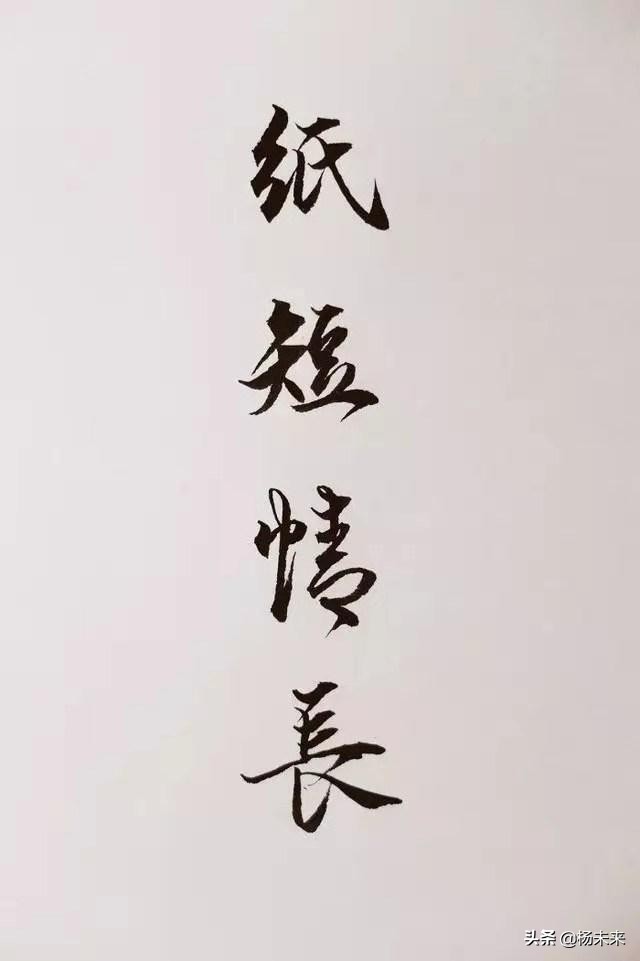 纸短情長
头条 @杨未来